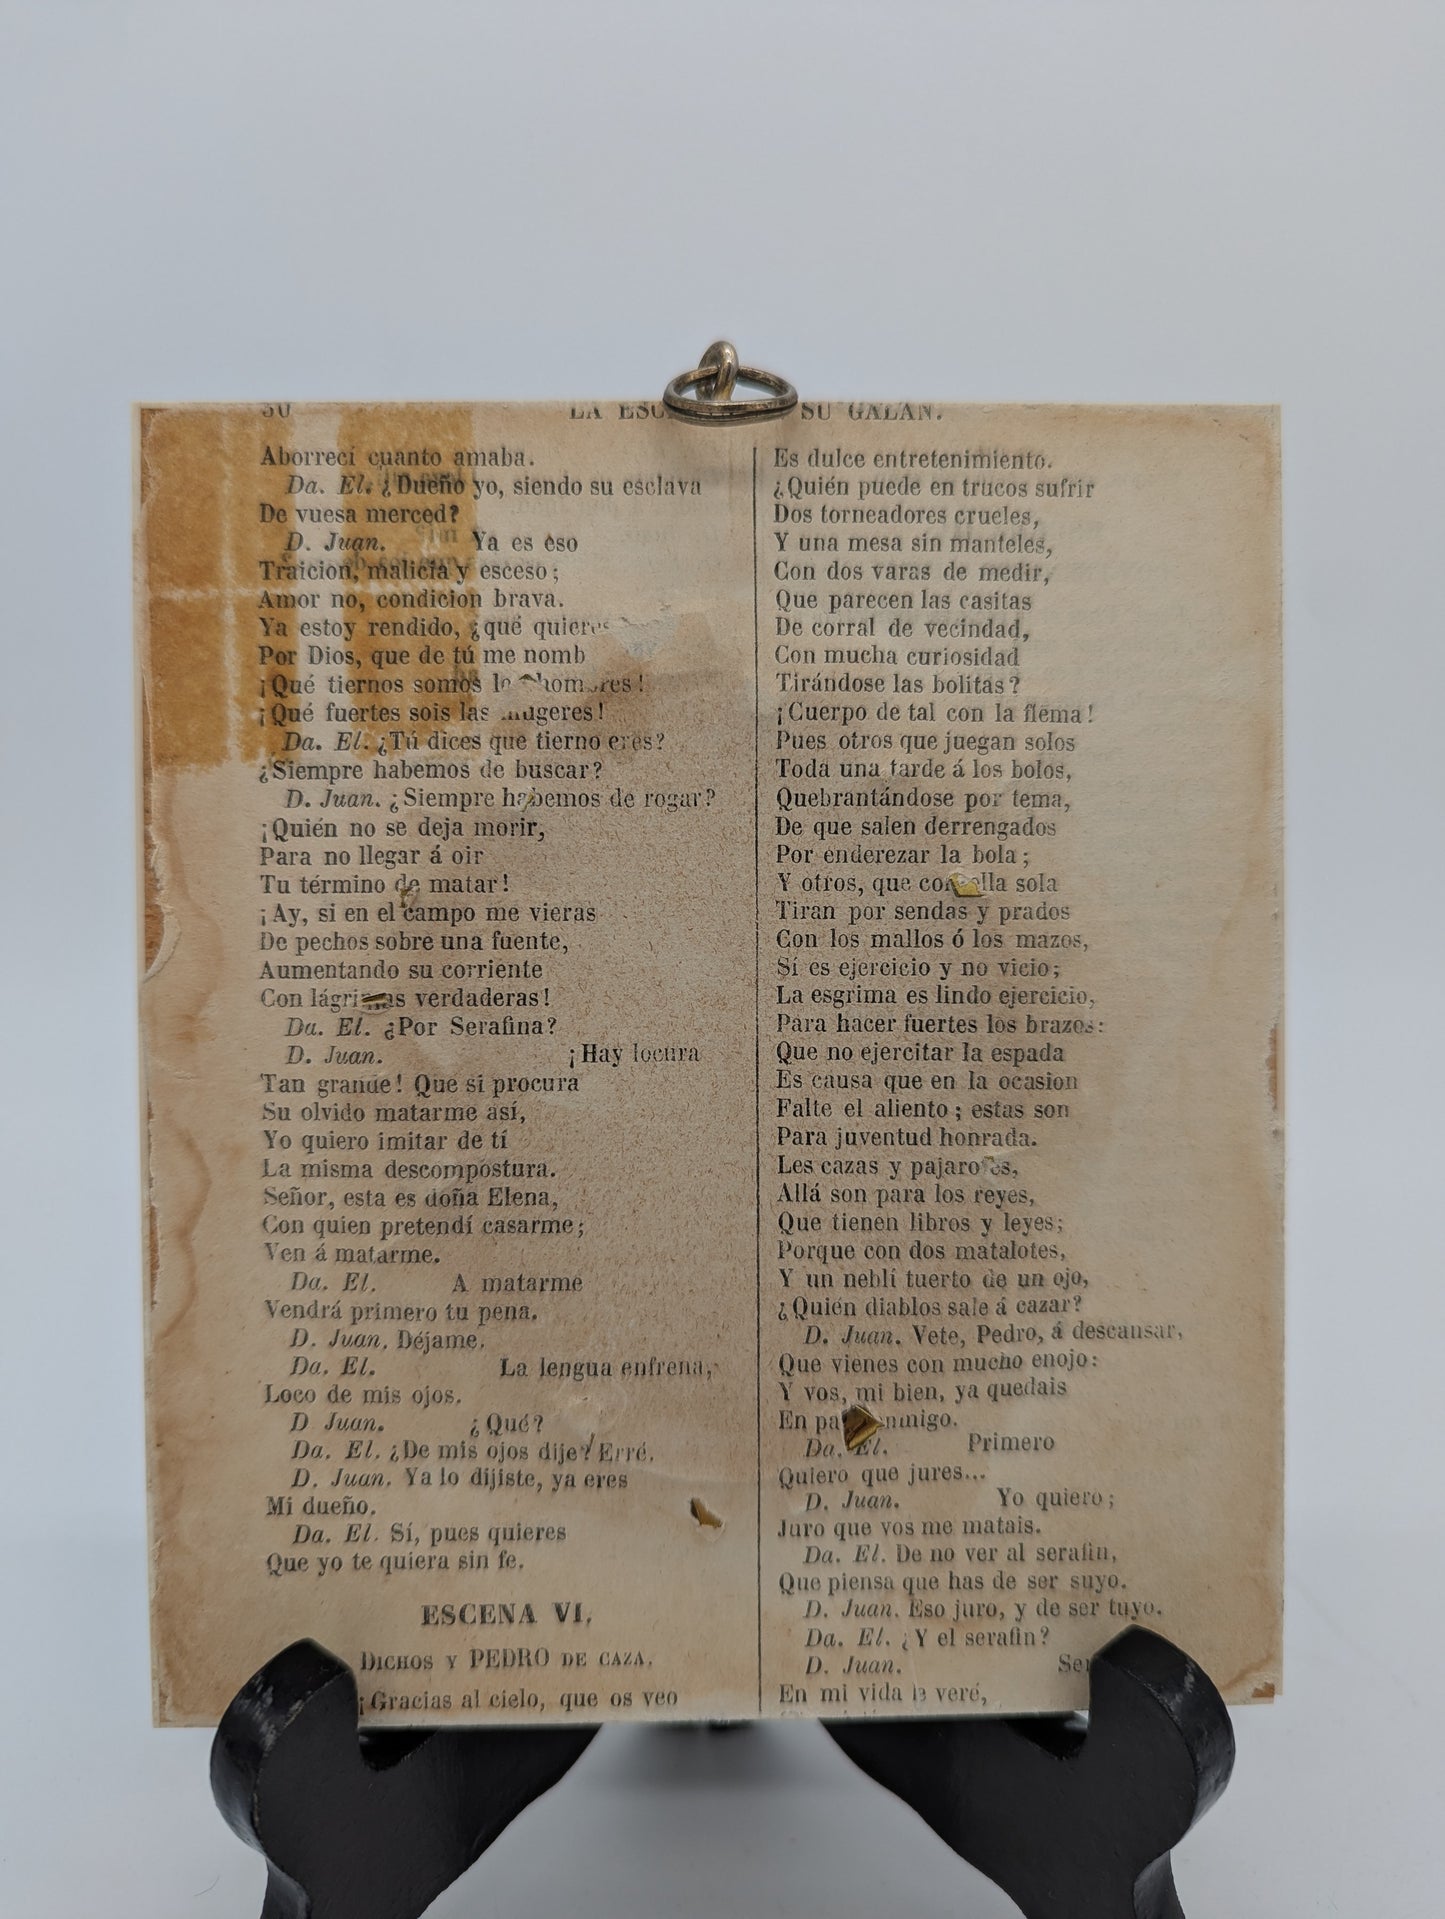 LA SU GALAN.
Aborrecí cuanto amaba.
Da. El. ¿Dueño yo, siendo su esclava
De vuesa merced?
D. Juan. Ya es eso
Traicion, malicia y esceso;
Amor no, condicion brava.
Ya estoy rendido, ¿qué quieres
Por Dios, que de tú me nomb
¡Qué tiernos somos hombres!
¡Qué fuertes sois las mugeres!
Da. El. ¿Tú dices que tierno eres?
¿Siempre habemos de buscar?
D. Juan. ¿Siempre habemos de rogar?
¡Quién no se deja morir,
Para no llegar á oir
Tu término de matar!
¡Ay, si en el campo me vieras
De pechos sobre una fuente,
Aumentando su corriente
Con lágrimas verdaderas!
Da. El. ¿Por Serafina?
D. Juan. ¡Hay locura
Tan grande! Que si procura
Su olvido matarme así,
Yo quiero imitar de tí
La misma descompostura.
Señor, esta es doña Elena,
Con quien pretendí casarme;
Ven á matarme.
Da. El. A matarme
Vendrá primero tu pena.
D. Juan. Déjame.
Da. El. La lengua enfrena,
Loco de mis ojos.
D Juan. ¿Qué?
Da. El. ¿De mis ojos dije? Erré.
D. Juan. Ya lo dijiste, ya eres
Mi dueño.
Da. El. Sí, pues quieres
Que yo te quiera sin fe.
ESCENA VI.
DICHOS Y PEDRO DE CAZA.
¡Gracias al cielo, que os veo
Es dulce entretenimiento.
¿Quién puede en trucos sufrir
Dos torneadores crueles,
Y una mesa sin manteles,
Con dos varas de medir,
Que parecen las casitas
De corral de vecindad,
Con mucha curiosidad
Tirándose las bolitas?
¡Cuerpo de tal con la flema!
Pues otros que juegan solos
Toda una tarde á los bolos,
Quebrantándose por tema,
De que salen derrengados
Por enderezar la bola;
Y otros, que con ella sola
Tiran por sendas y prados
Con los mallos ó los mazos,
Sí es ejercicio y no vicio;
La esgrima es lindo ejercicio,
Para hacer fuertes los brazos:
Que no ejercitar la espada
Es causa que en la ocasion
Falte el aliento; estas son
Para juventud honrada.
Les cazas y pajarotes,
Allá son para los reyes,
Que tienen libros y leyes;
Porque con dos matalotes,
Y un neblí tuerto de un ojo,
¿Quién diablos sale á cazar?
D. Juan. Vete, Pedro, á descansar,
Que vienes con mucho enojo:
Y vos, mi bien, ya quedais
En pa nmigo.
Da. El. Primero
Quiero que jures...
D. Juan. Yo quiero;
Juro que vos me matais.
Da. El. De no ver al serafin,
Que piensa que has de ser suyo.
D. Juan. Eso juro, y de ser tuyo.
Da. El. ¿Y el serafin?
D. Juan. Ser
En mi vida la veré,